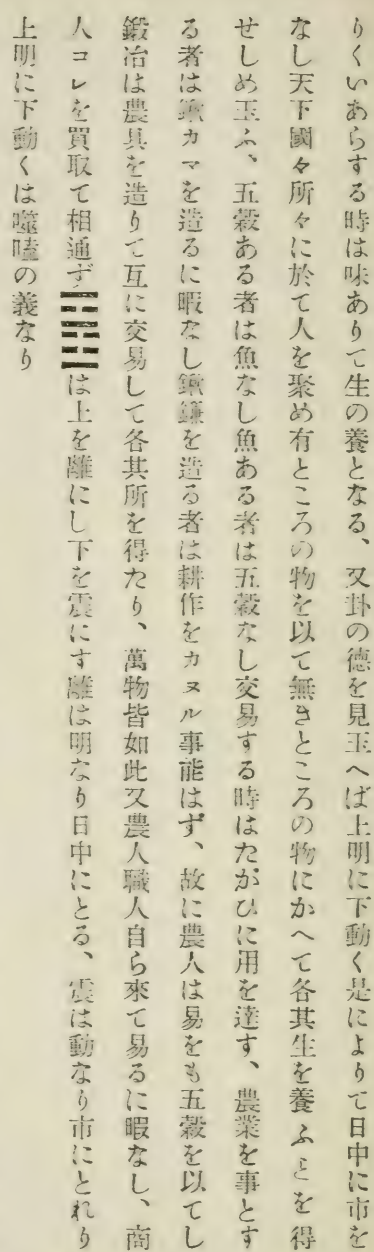 りくいあらする時は味ありて生の養となる、又卦の德を見玉へば上明に下動く是によりて日中に市を
なし天下國々所々に於て人を聚め有ところの物を以て無きところの物にかへて各其生を養ふとを得
せしめ玉ふ、五穀ある者は魚なし魚ある者は五穀なし交易する時はたがひに用を達す、農業を事とす
る者は鍬カマを造るに暇なし鍬鎌を造る者は耕作をカヌル事能はず、故に農人は易をも五穀を以てし
鍛冶は農具を造りて互に交易して各其所を得たり、萬物皆如此又農人職人自ら來て易るに暇なし、商
人コレを買取て相通ず䷔は上を離にし下を震にす離は明なり日中にとる、震は動なり市にとれり
上明に下動くは噬嗑の義なり